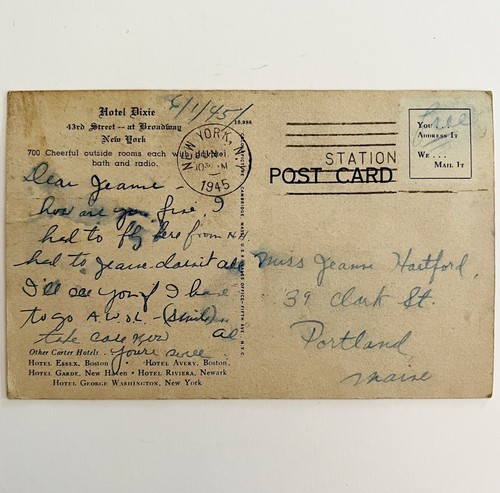 Hotel Dixie
43rd Street -- at Broadway
New York
700 Cheerful outside rooms each with
bath and radio.
6/1/45
NEW YORK, N.Y.
JUN 1
1945
STATION
POST CARD
YOU . . .
ADDRESS IT
WE . . .
MAIL IT
Free
Dear Jeanne -
how are you fine, I
had to fly here from
had to Jeanne.
I'll see you if I have
to go A.W.O.L. (Smile)
take care now
Al
yours
Miss Jeanne Hartford,
39 Clark St.
Portland
Maine
Other Carter Hotels
HOTEL ESSEX, Boston • HOTEL AVERY, Boston,
HOTEL GARDE, New Haven • HOTEL RIVIERA, Newark
HOTEL GEORGE WASHINGTON, New York